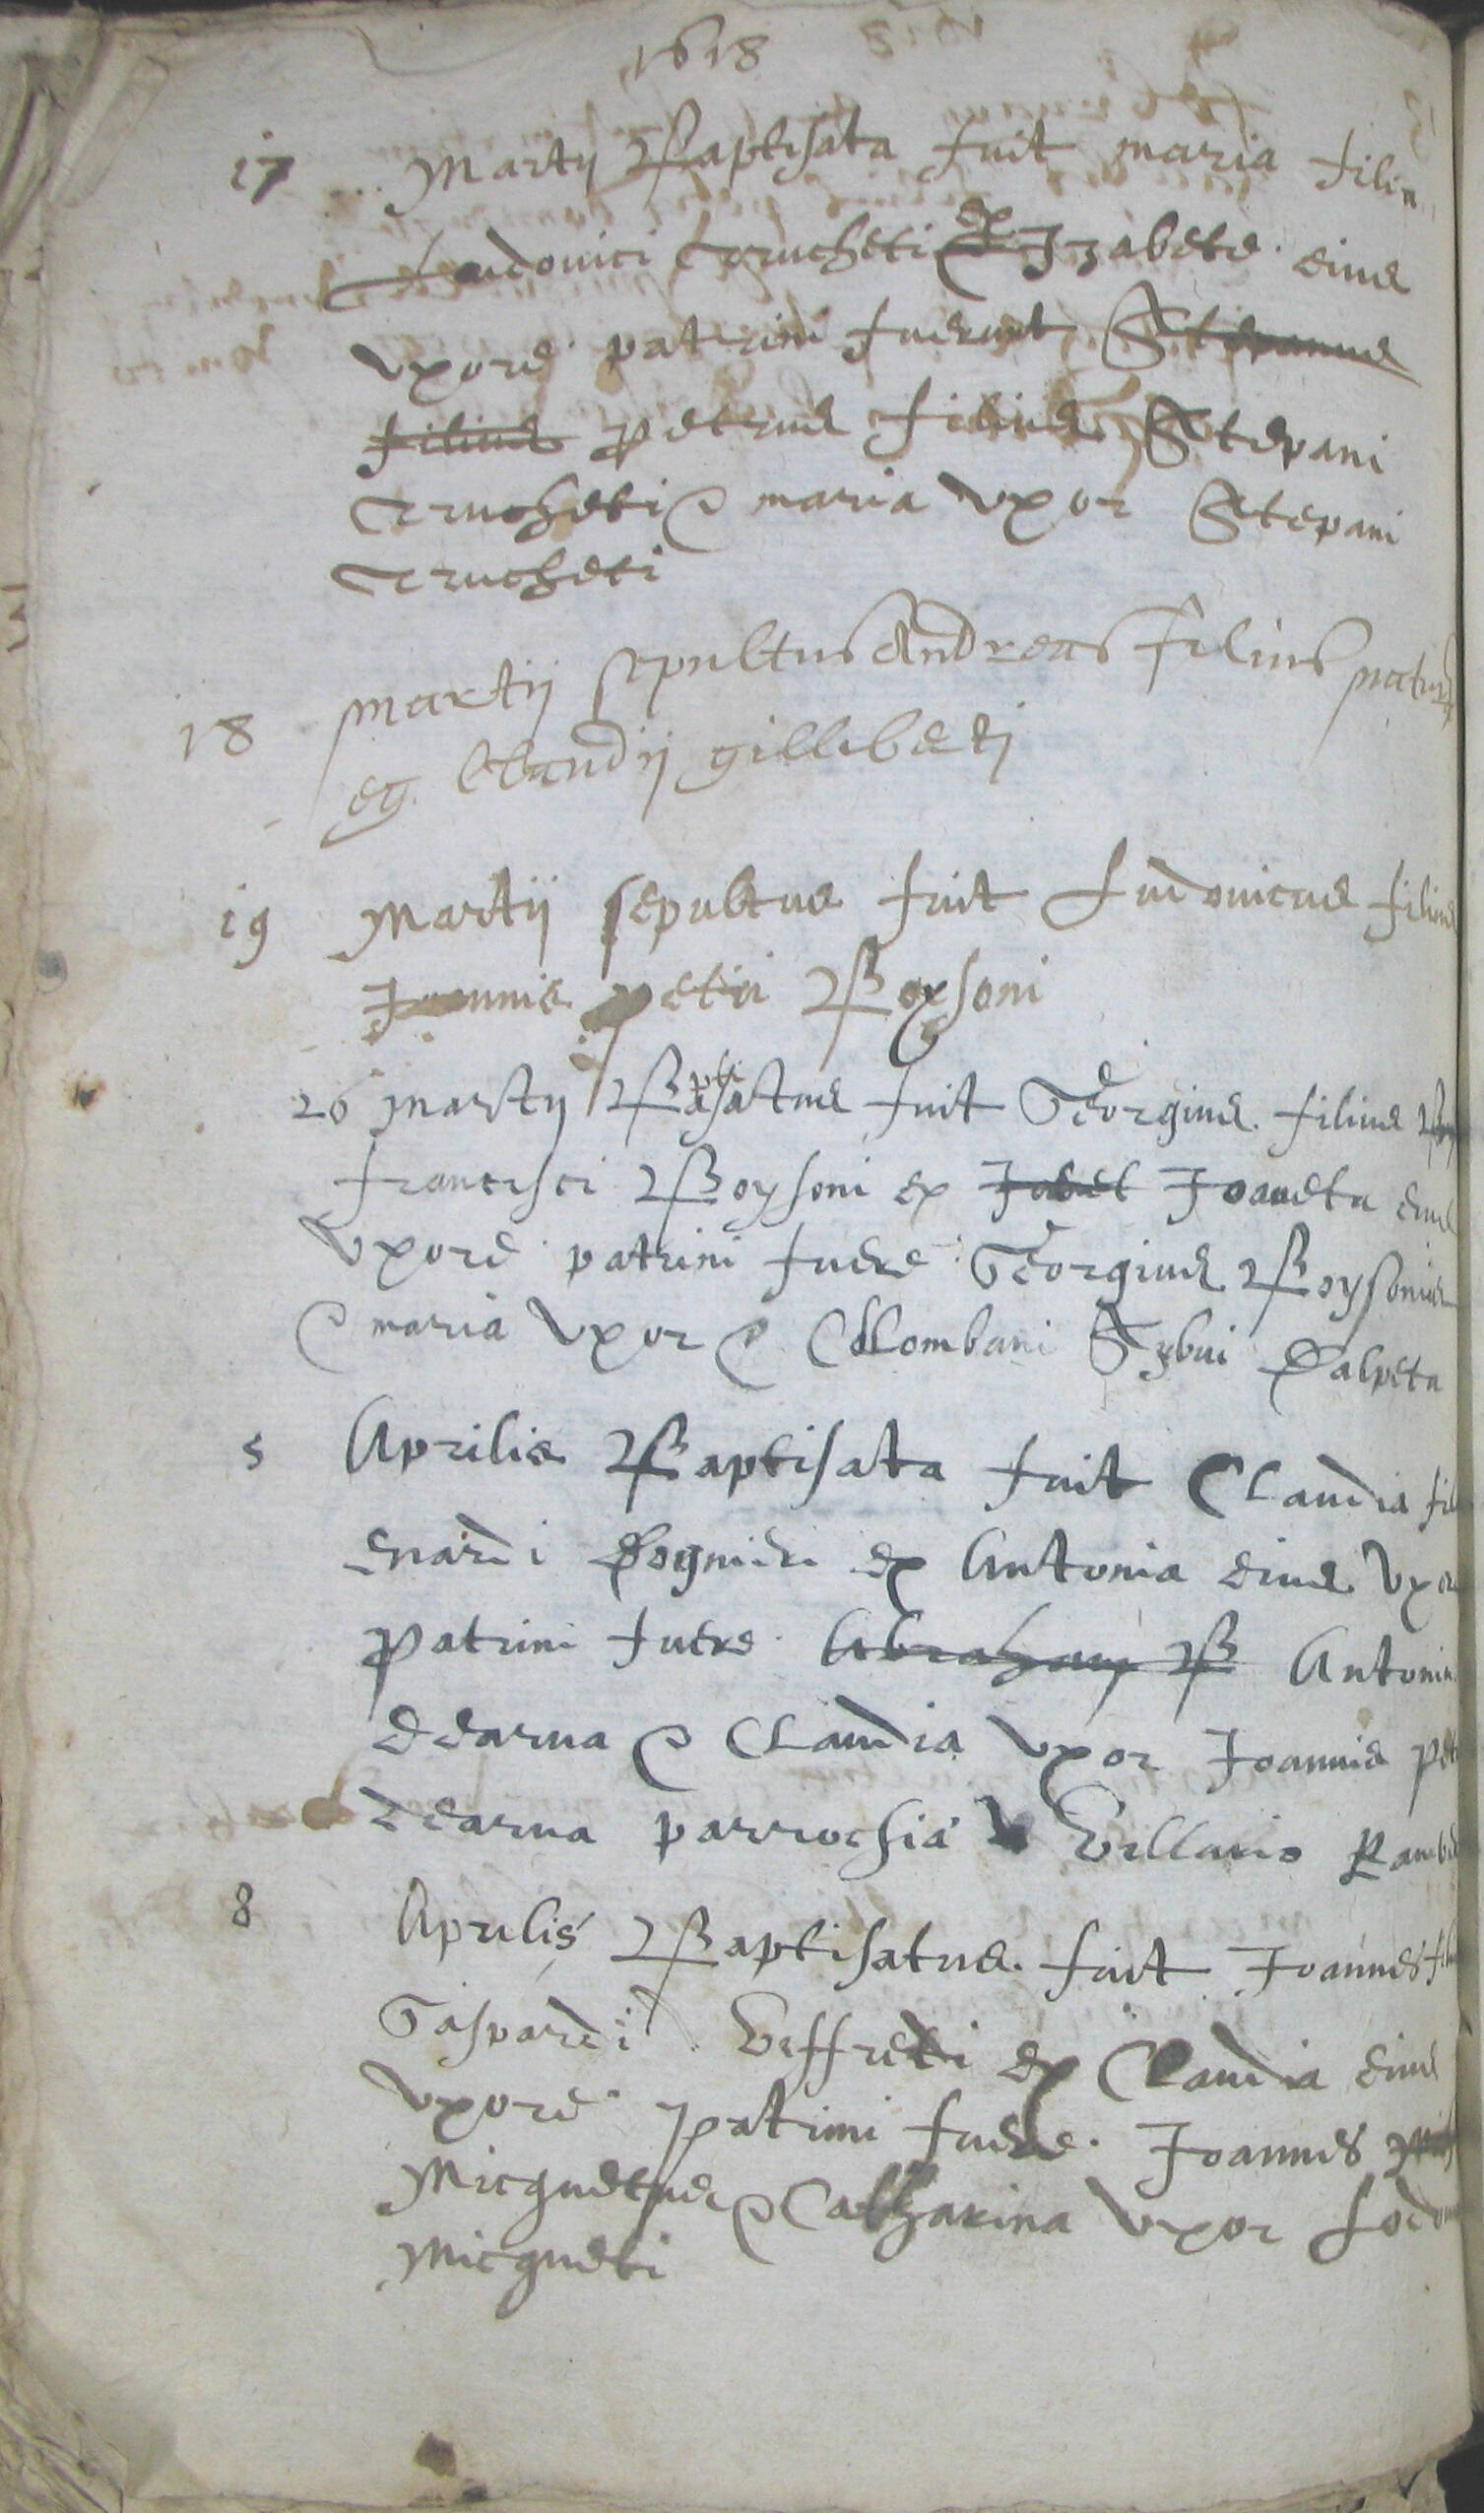 1618
17 Martij Baptisata fuit maria filia
Ludovici Trucheti ex Izabete eius
vxore patrini fuerunt Stepanus
filius petrus filius Stepani
Trucheti & maria vxor Stepani
Trucheti
18 martij sepultus Andreas filius
eg. Claudij gilleberti
19 Martij sepultus fuit Ludovicus filius
Joannis petri Boysoni
26 martij Baptisatus fuit Georgius filius
francisci Boysoni ex Joaneta eius
vxore patrini fuere Georgius Boysonius
& maria vxor Collombani
5 Aprilis Baptisata fuit Claudia fil
enardi ex Antonia eius vxor
Patrini fuere Abraham B Antonius
& Claudia vxor Joannis pet
parrochia Villario
8 Aprilis Baptisatus fuit Joannes fil
Gaspardi Veffredi ex Claudia eius
vxore patrini fuere Joannes
Micguetus & Catharina vxor Lodo
Micgueti